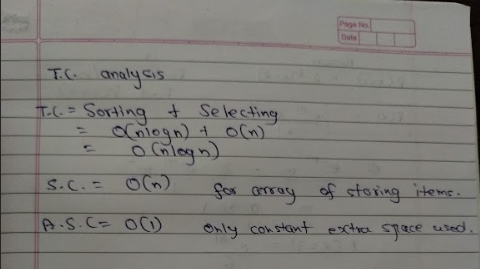 Page No.
Date
T.C. analysis
T.C. = Sorting + Selecting
= O(nlogn) + O(n)
= O(nlogn)
S.C. = O(n) for array of storing items.
A.S.C = O(1) only constant extra space used.